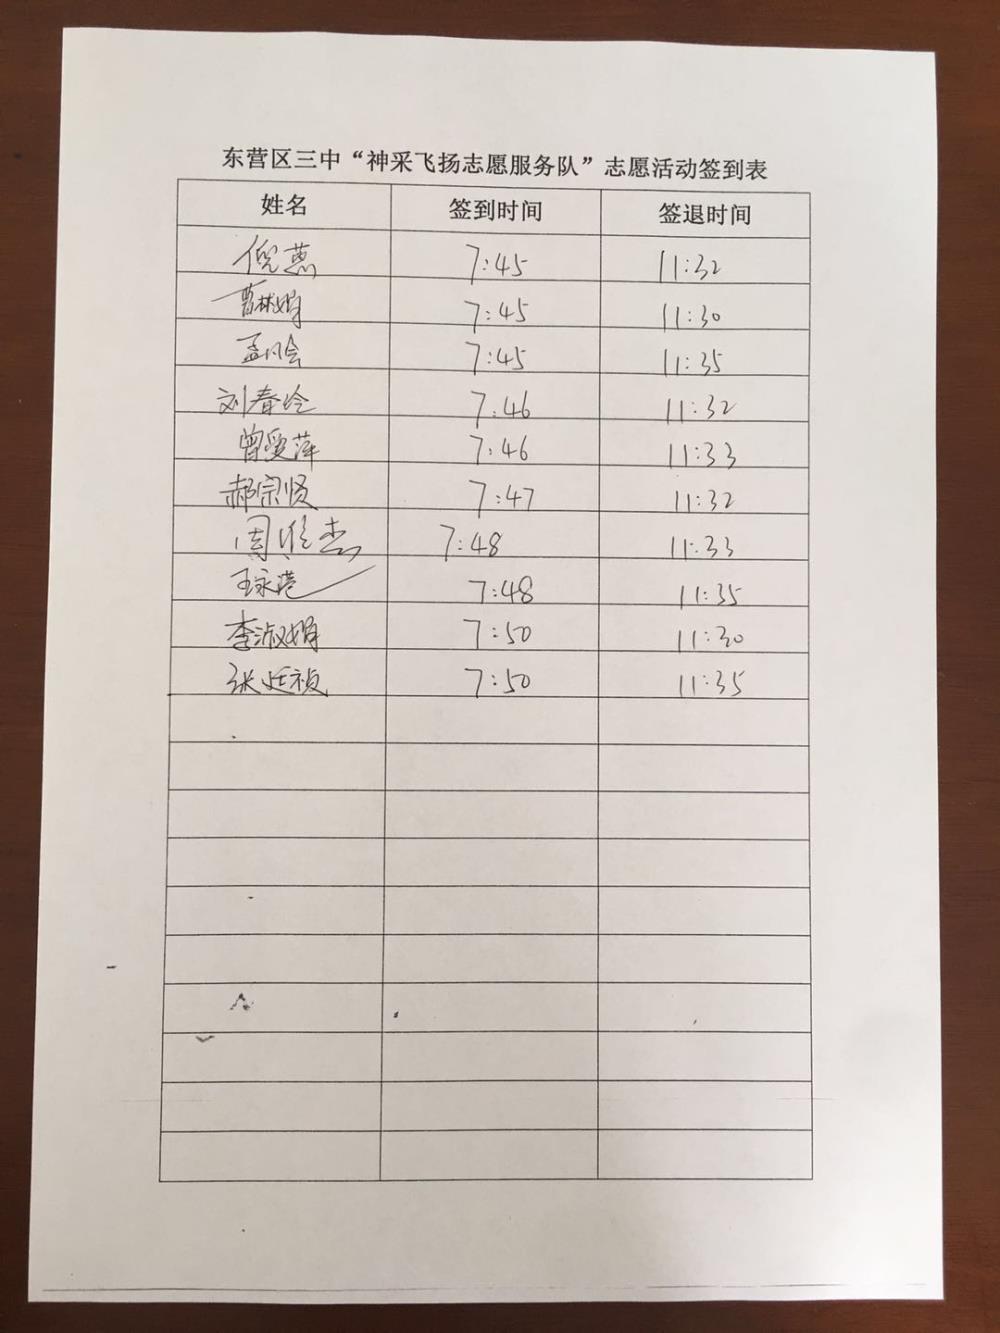 东营区三中“神采飞扬志愿服务队”志愿活动签到表
姓名 签到时间 签退时间
倪慧 7:45 11:32
曹林娟 7:45 11:30
孟会 7:45 11:35
刘春玲 7:46 11:32
曾爱萍 7:46 11:33
郝宗贤 7:47 11:32
周杰 7:48 11:33
王永港 7:48 11:35
李淑娟 7:50 11:30
张祯 7:50 11:35